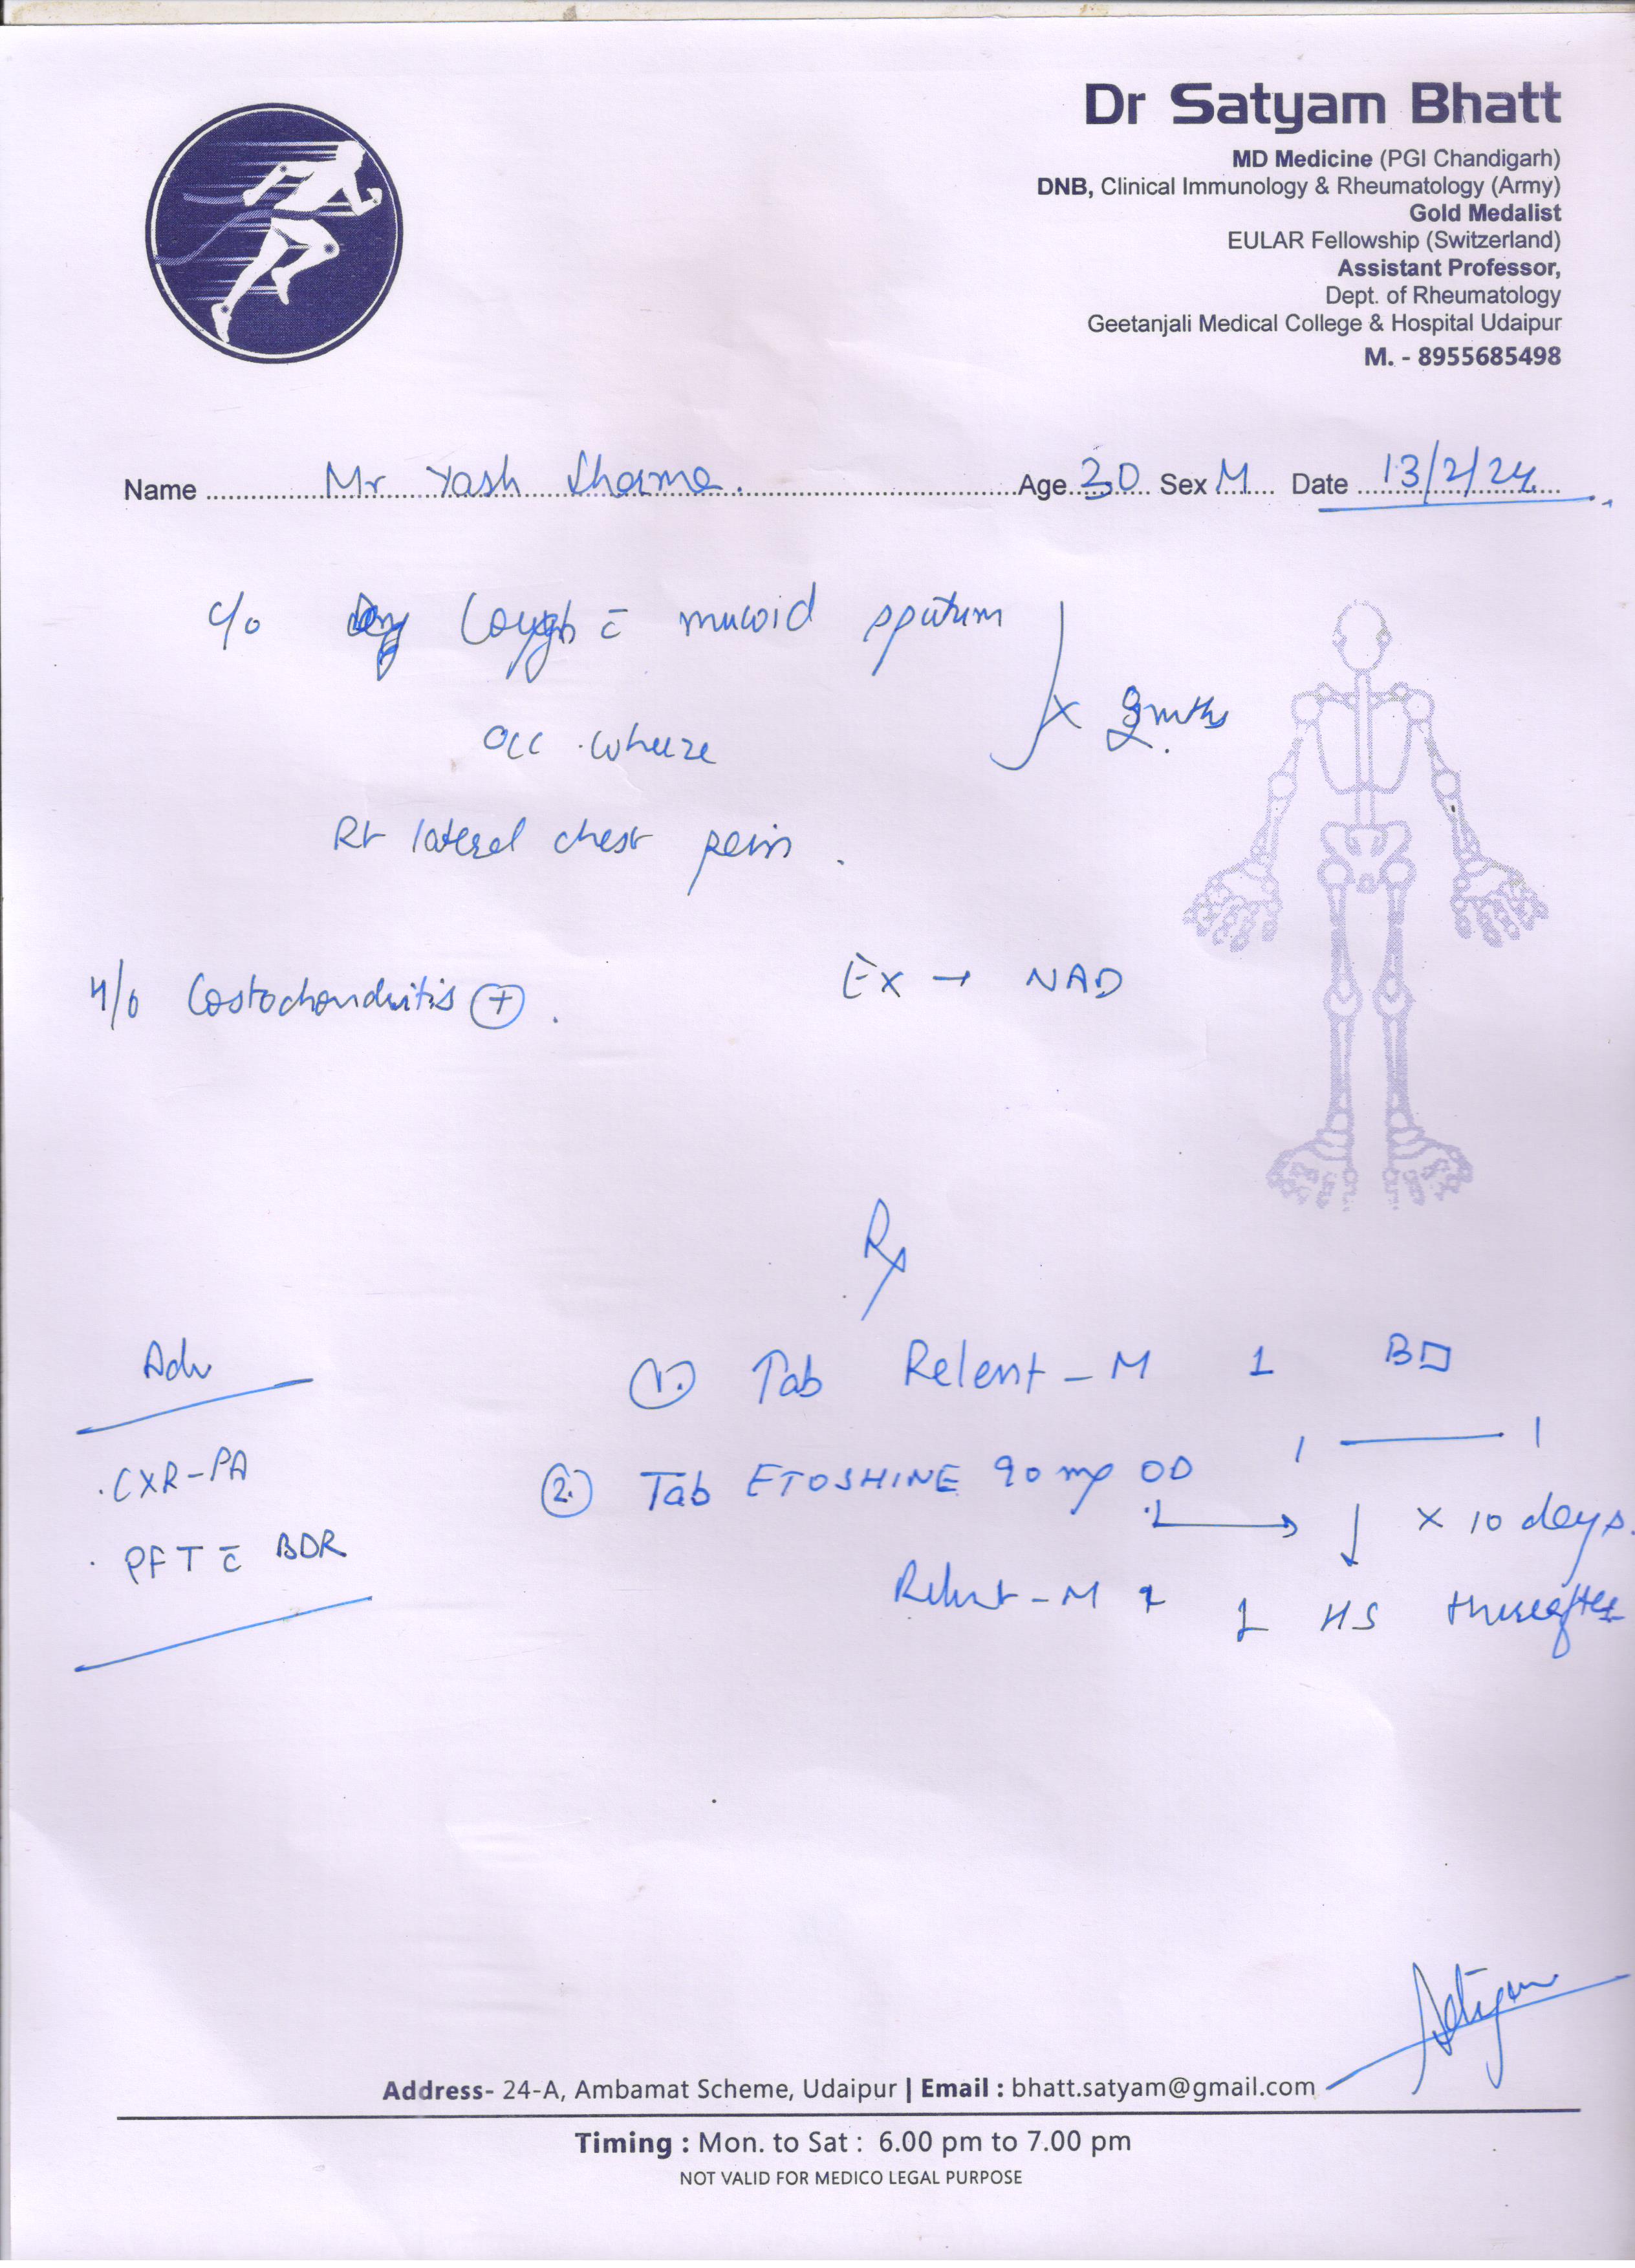 Dr Satyam Bhatt
MD Medicine (PGI Chandigarh)
DNB, Clinical Immunology & Rheumatology (Army)
Gold Medalist
EULAR Fellowship (Switzerland)
Assistant Professor,
Dept. of Rheumatology
Geetanjali Medical College & Hospital Udaipur
M. - 8955685498
Name Mr Yash Sharma. Age 30 Sex M Date 13/2/24
c/o Cough c̄ mucoid sputum
occ. wheeze x mths
Rt lateral chest pain.
H/o Costochondritis (+).
Ex → NAD
Rx
Adv
. CXR-PA
. PFT c̄ BDR
(1.) Tab Relent-M 1 BD
1 — 1
(2.) Tab ETOSHINE 90 mg OD
↓ x 10 days.
Relent-M 1 HS thereafter
Satyam
Address- 24-A, Ambamat Scheme, Udaipur | Email : bhatt.satyam@gmail.com
Timing : Mon. to Sat : 6.00 pm to 7.00 pm
NOT VALID FOR MEDICO LEGAL PURPOSE